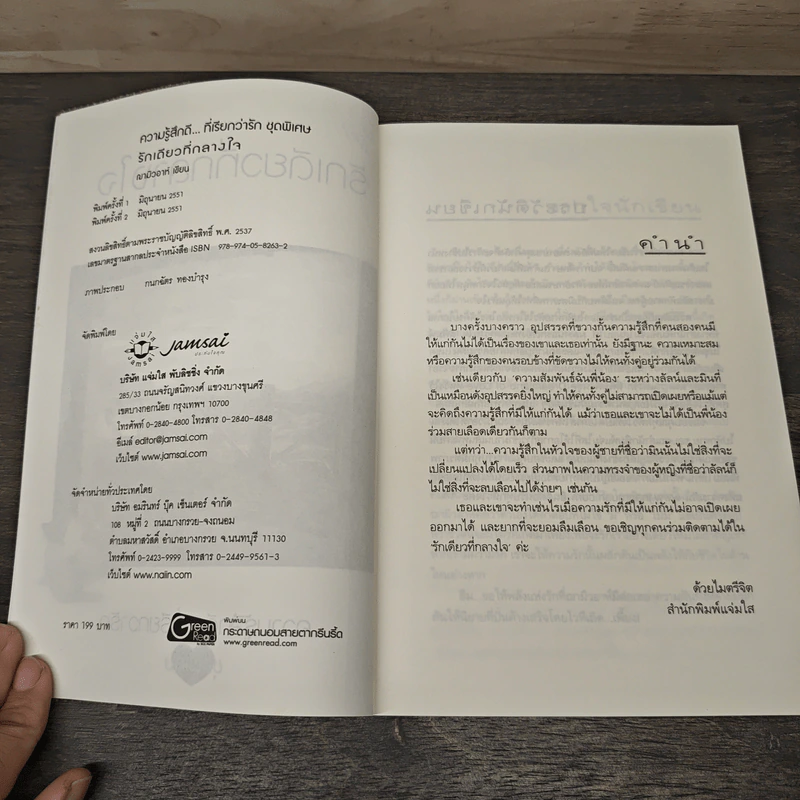 ความรู้สึกดี... ที่เรียกว่ารัก ชุดพิเศษ
รักเดียวที่กลางใจ
ณามิวอาห์ เขียน
พิมพ์ครั้งที่ 1 มิถุนายน 2551
พิมพ์ครั้งที่ 2 มิถุนายน 2551
สงวนลิขสิทธิ์ตามพระราชบัญญัติลิขสิทธิ์ พ.ศ. 2537
เลขมาตรฐานสากลประจำหนังสือ ISBN 978-974-05-8263-2
ภาพประกอบ กนกฉัตร ทองบำรุง
จัดพิมพ์โดย
แจ่มใส
JAMSAI
Jamsai
บริษัท แจ่มใส พับลิชชิ่ง จำกัด
285/33 ถนนจรัญสนิทวงศ์ แขวงบางขุนศรี
เขตบางกอกน้อย กรุงเทพฯ 10700
โทรศัพท์ 0-2840-4800 โทรสาร 0-2840-4848
อีเมล์ editor@jamsai.com
เว็บไซต์ www.jamsai.com
จัดจำหน่ายทั่วประเทศโดย
บริษัท อมรินทร์ บุ๊ค เซ็นเตอร์ จำกัด
108 หมู่ที่ 2 ถนนบางกรวย-จงถนอม
ตำบลมหาสวัสดิ์ อำเภอบางกรวย จ.นนทบุรี 11130
โทรศัพท์ 0-2423-9999 โทรสาร 0-2449-9561-3
เว็บไซต์ www.naiin.com
ราคา 199 บาท
Green Read
พิมพ์บน
กระดาษถนอมสายตากรีนรี้ด
www.greenread.com
คำนำ
บางครั้งบางคราว อุปสรรคที่ขวางกั้นความรู้สึกที่คนสองคนมี
ให้แก่กันไม่ได้เป็นเรื่องของเขาและเธอเท่านั้น ยังมีฐานะ ความเหมาะสม
หรือความรู้สึกของคนรอบข้างที่ขัดขวางไม่ให้คนทั้งคู่อยู่ร่วมกันได้
เช่นเดียวกับ 'ความสัมพันธ์ฉันพี่น้อง' ระหว่างลัลน์และมินที่
เป็นเหมือนดังอุปสรรคยิ่งใหญ่ ทำให้คนทั้งคู่ไม่สามารถเปิดเผยหรือแม้แต่
จะคิดถึงความรู้สึกที่มีให้แก่กันได้ แม้ว่าเธอและเขาจะไม่ได้เป็นพี่น้อง
ร่วมสายเลือดเดียวกันก็ตาม
แต่ทว่า...ความรู้สึกในหัวใจของผู้ชายที่ชื่อว่ามินนั้นไม่ใช่สิ่งที่จะ
เปลี่ยนแปลงได้โดยเร็ว ส่วนภาพในความทรงจำของผู้หญิงที่ชื่อว่าลัลน์ก็
ไม่ใช่สิ่งที่จะลบเลือนไปได้ง่ายๆ เช่นกัน
เธอและเขาจะทำเช่นไรเมื่อความรักที่มีให้แก่กันไม่อาจเปิดเผย
ออกมาได้ และยากที่จะยอมลืมเลือน ขอเชิญทุกคนร่วมติดตามได้ใน
'รักเดียวที่กลางใจ' ค่ะ
ด้วยไมตรีจิต
สำนักพิมพ์แจ่มใส